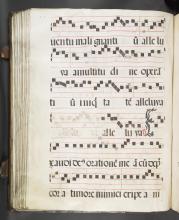 uentu mali gnanti ū alle lu
ya a multitu di ne operā
ti ū iniq ta tē alleluya
alle luya
xaudi de' oratione me ā cū
cor a timore inimici eripe a ni